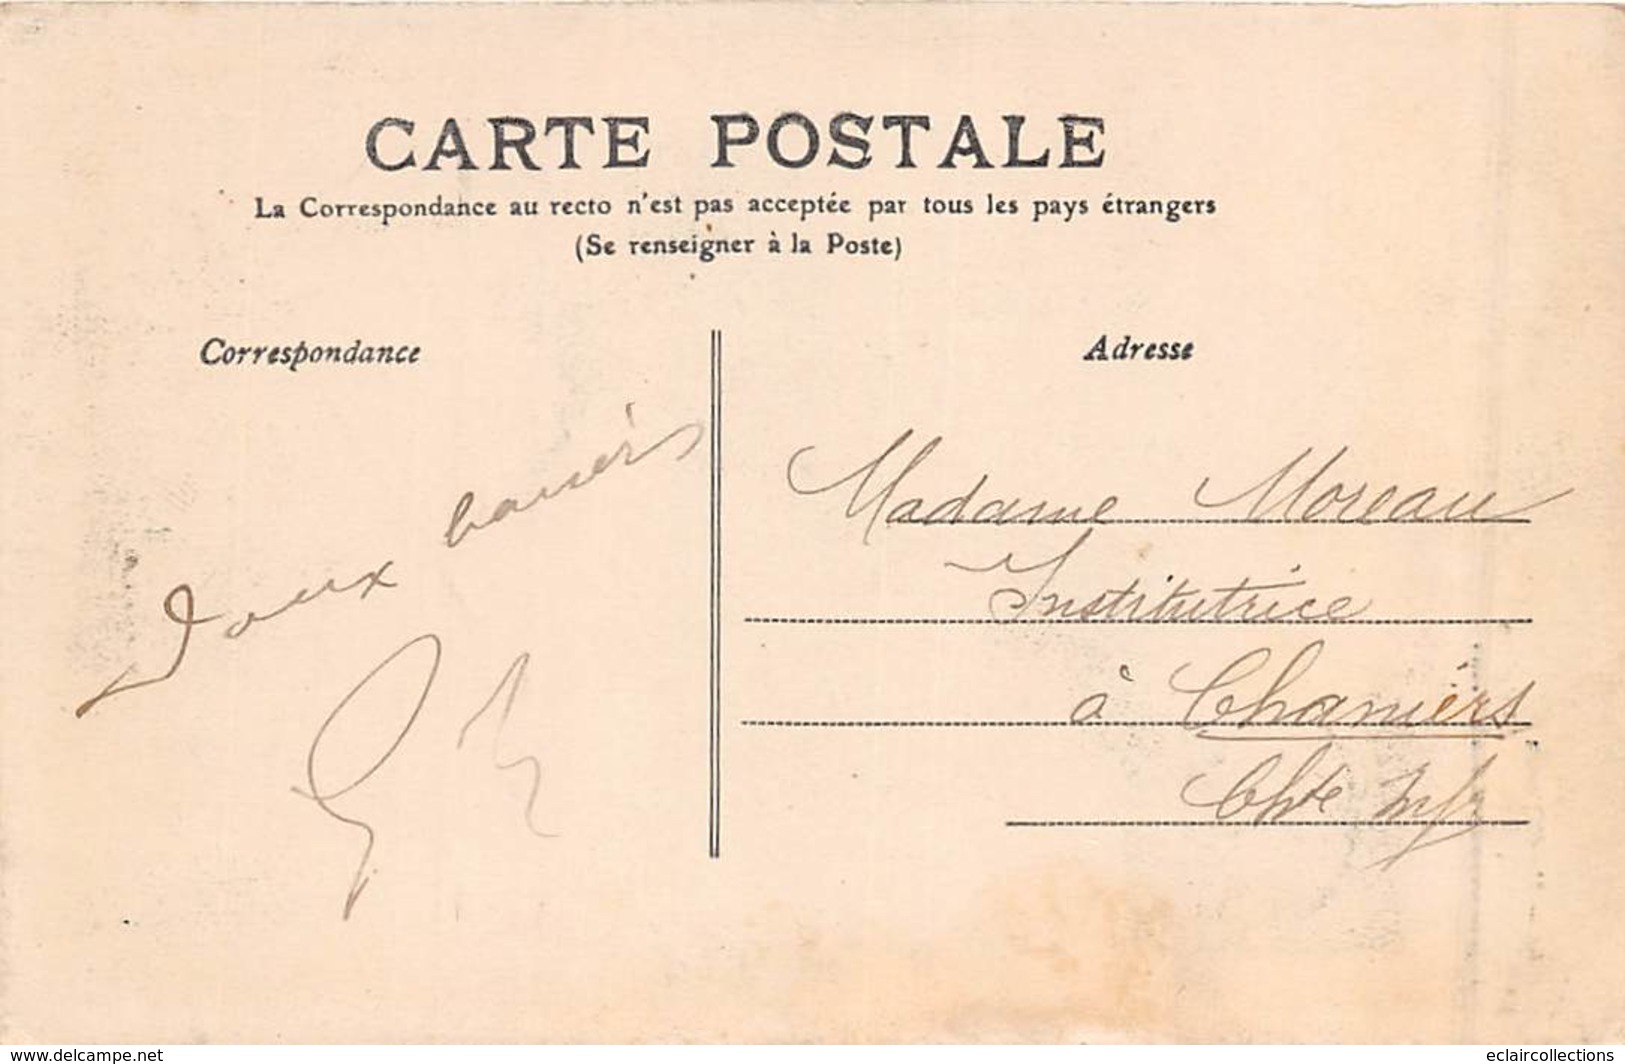 CARTE POSTALE
La Correspondance au recto n'est pas acceptée par tous les pays étrangers
(Se renseigner à la Poste)
Correspondance
Adresse
Doux baisers
Madame Moreau
Institutrice
à Chaniers
Chte Infre
www.delcampe.net
eclaircollections